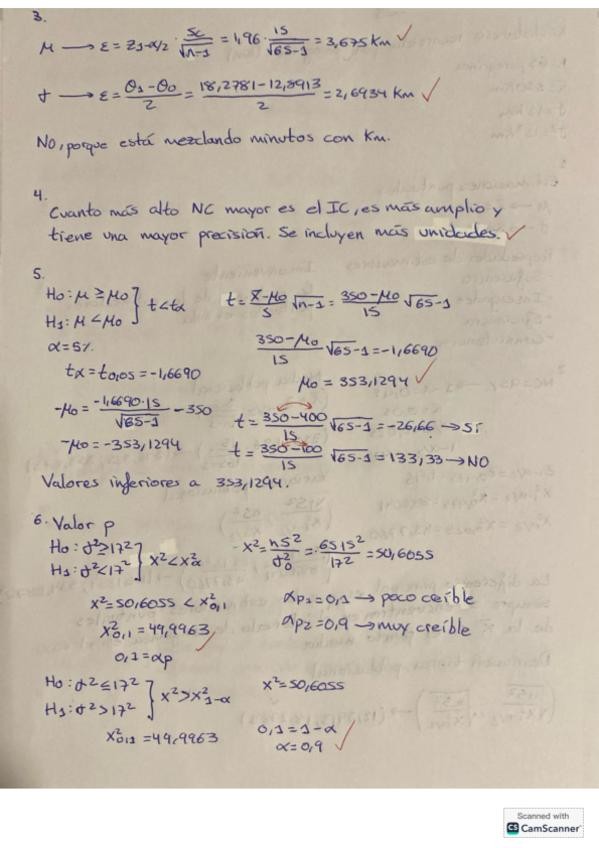 3.
μ → ε = z1-α/2 · Sc/√n-1 = 1,96 · 15/√65-1 = 3,675 Km ✓
σ → ε = θ1-θ0/2 = 18,2781-12,8913/2 = 2,6934 Km ✓
NO, porque está mezclando minutos con Km.
4.
Cuanto más alto NC mayor es el IC, es más amplio y
tiene una mayor precisión. Se incluyen más unidades. ✓
5.
H0: μ ≥ μ0
H1: μ < μ0 } t < tα
t = x̄-μ0/S √n-1 = 350-μ0/15 √65-1
α = 5%
350-μ0/15 √65-1 = -1,6690
tα = t0,05 = -1,6690
μ0 = 353,1294 ✓
-μ0 = -1,6690·15/√65-1 - 350
t = 350-400/15 √65-1 = -26,66 → Sí
-μ0 = -353,1294
t = 350-100/15 √65-1 = 133,33 → NO
Valores inferiores a 353,1294.
6. Valor p
H0: σ² ≥ 17²
H1: σ² < 17² } x² < x²α
x² = nS²/σ²0 = 65 15²/17² = 50,6055
x² = 50,6055 < x²0,1
αp1 = 0,1 → poco creíble
x²0,1 = 49,9963 ✓
αp2 = 0,9 → muy creíble
0,1 = αp
H0: σ² ≤ 17²
H1: σ² > 17² } x² > x²1-α
x² = 50,6055
x²0,1 = 49,9963
0,1 = 1-α
α = 0,9 ✓
Scanned with
CS CamScanner